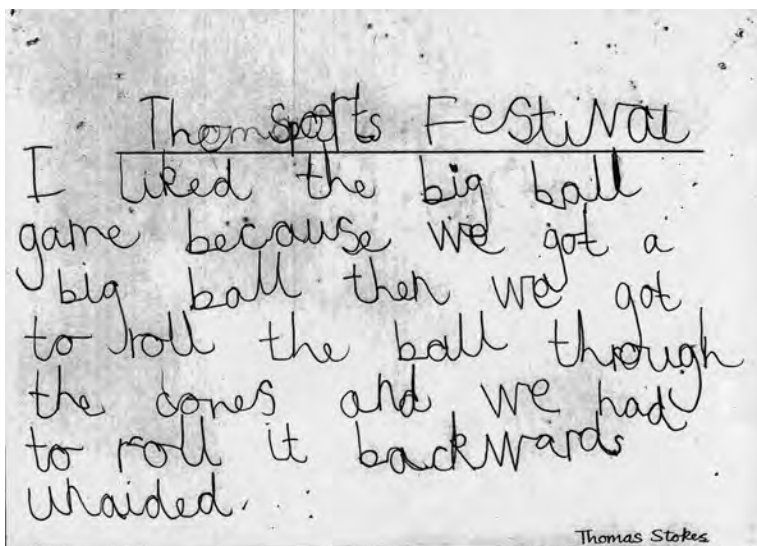 Sports Festival
I liked the big ball
game because we got a
big ball then we got
to roll the ball through
the cones and we had
to roll it backwards
unaided.
Thomas Stokes